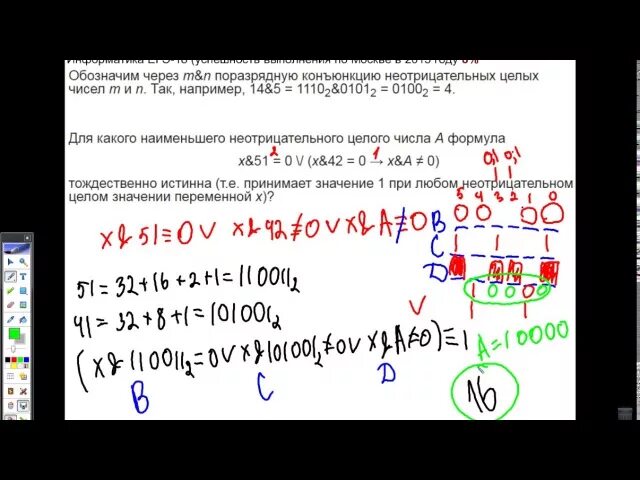 Информатика ЕГЭ-18 (успешность выполнения по Москве в 2015 году 6%
Обозначим через m&n поразрядную конъюнкцию неотрицательных целых
чисел m и n. Так, например, 14&5 = 1110₂&0101₂ = 0100₂ = 4.
Для какого наименьшего неотрицательного целого числа A формула
2 1
x&51 = 0 \/ (x&42 = 0 → x&A ≠ 0)
тождественно истинна (т.е. принимает значение 1 при любом неотрицательном
целом значении переменной x)?
0,1 0,1
5 4 3 2 1 0
B 0 0 0 0
C 1 1 1
D
1 0 0 0 0
x&51=0 ∨ x&42≠0 ∨ x&A≠0
51=32+16+2+1=110011₂
41=32+8+1=101001₂
(x&110011₂=0 ∨ x&101001₂≠0 ∨ x&A≠0)≡1
B C D
A=10000
16